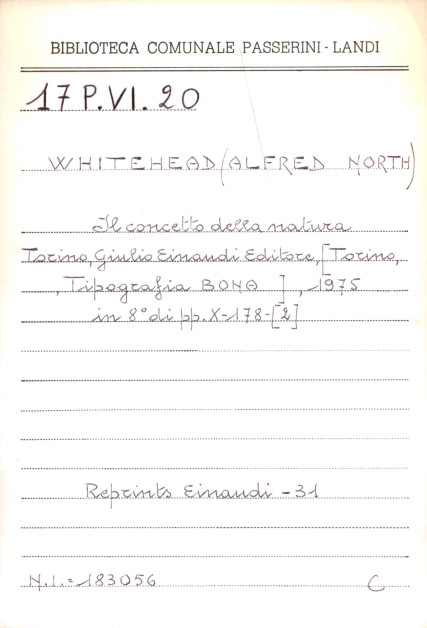 BIBLIOTECA COMUNALE PASSERINI - LANDI
17 P.VI. 20
WHITEHEAD (ALFRED NORTH)
Il concetto della natura
Torino, Giulio Einaudi Editore, [Torino,
, Tipografia BONA ] , 1975
in 8° di pp. X-178-[2]
Reprints Einaudi - 31
N.I. = 183056 C